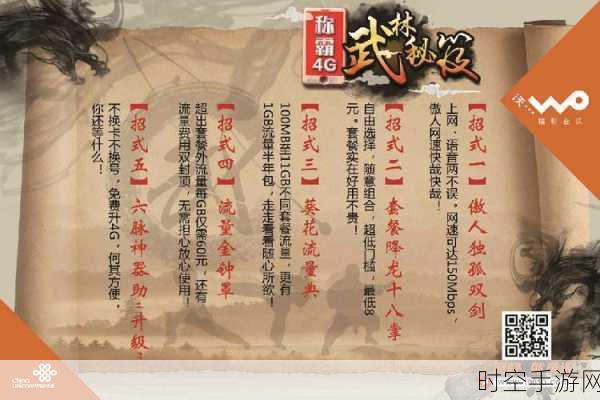 称霸4G
武林秘笈
沃
WO
精彩在沃
【招式一】傲人独孤双剑
上网、语音两不误，网速可达150Mbps，
傲人网速快哉快哉！
【招式二】套餐降龙十八掌
自由选择，随意组合，超低门槛，最低8
元。套餐实在好用不贵！
【招式三】葵花流量典
100MB到11GB不同套餐流量，更有
1GB流量半年包，走走看看随心所欲！
【招式四】流量金钟罩
超出套餐外流量每GB仅需60元，还有
流量费用双封顶，无需担心放心使用！
【招式五】六脉神器助3升级
不换卡不换号，免费升4G，何其方便，
你还等什么！
China
unicom中国联通
时空手游网